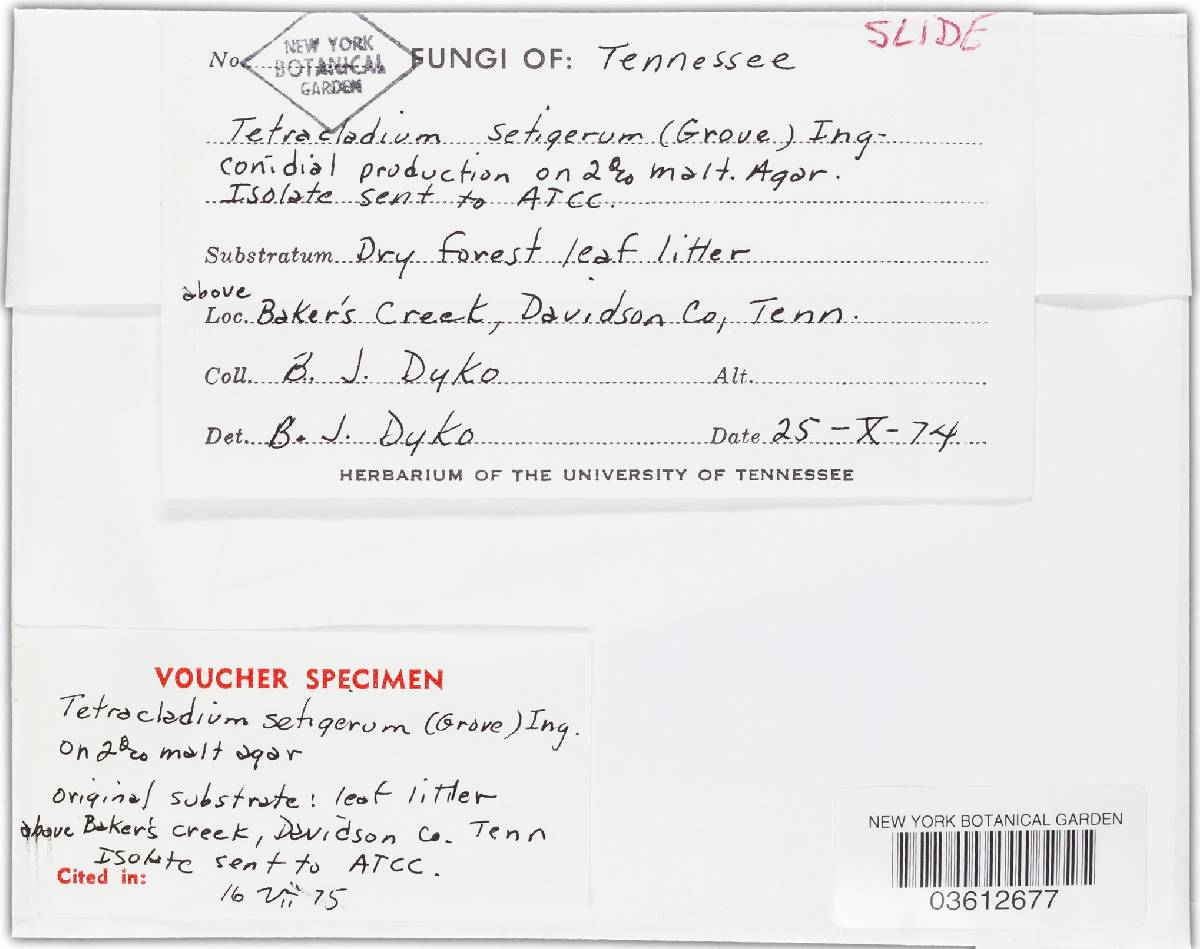 SLIDE
No.
NEW YORK
BOTANICAL
GARDEN
FUNGI OF: Tennessee
Tetracladium setigerum (Grove) Ing-
conidial production on 2% malt. Agar.
Isolate sent to ATCC.
Substratum Dry forest leaf litter
above
Loc. Baker's Creek, Davidson Co, Tenn.
Coll. B. J. Dyko Alt.
Det. B. J. Dyko Date 25-X-74
HERBARIUM OF THE UNIVERSITY OF TENNESSEE
VOUCHER SPECIMEN
Tetracladium setigerum (Grove) Ing.
on 2% malt agar
original substrate: leaf litter
above Baker's creek, Davidson Co. Tenn
Isolate sent to ATCC.
Cited in:
16 vii 75
NEW YORK BOTANICAL GARDEN
03612677